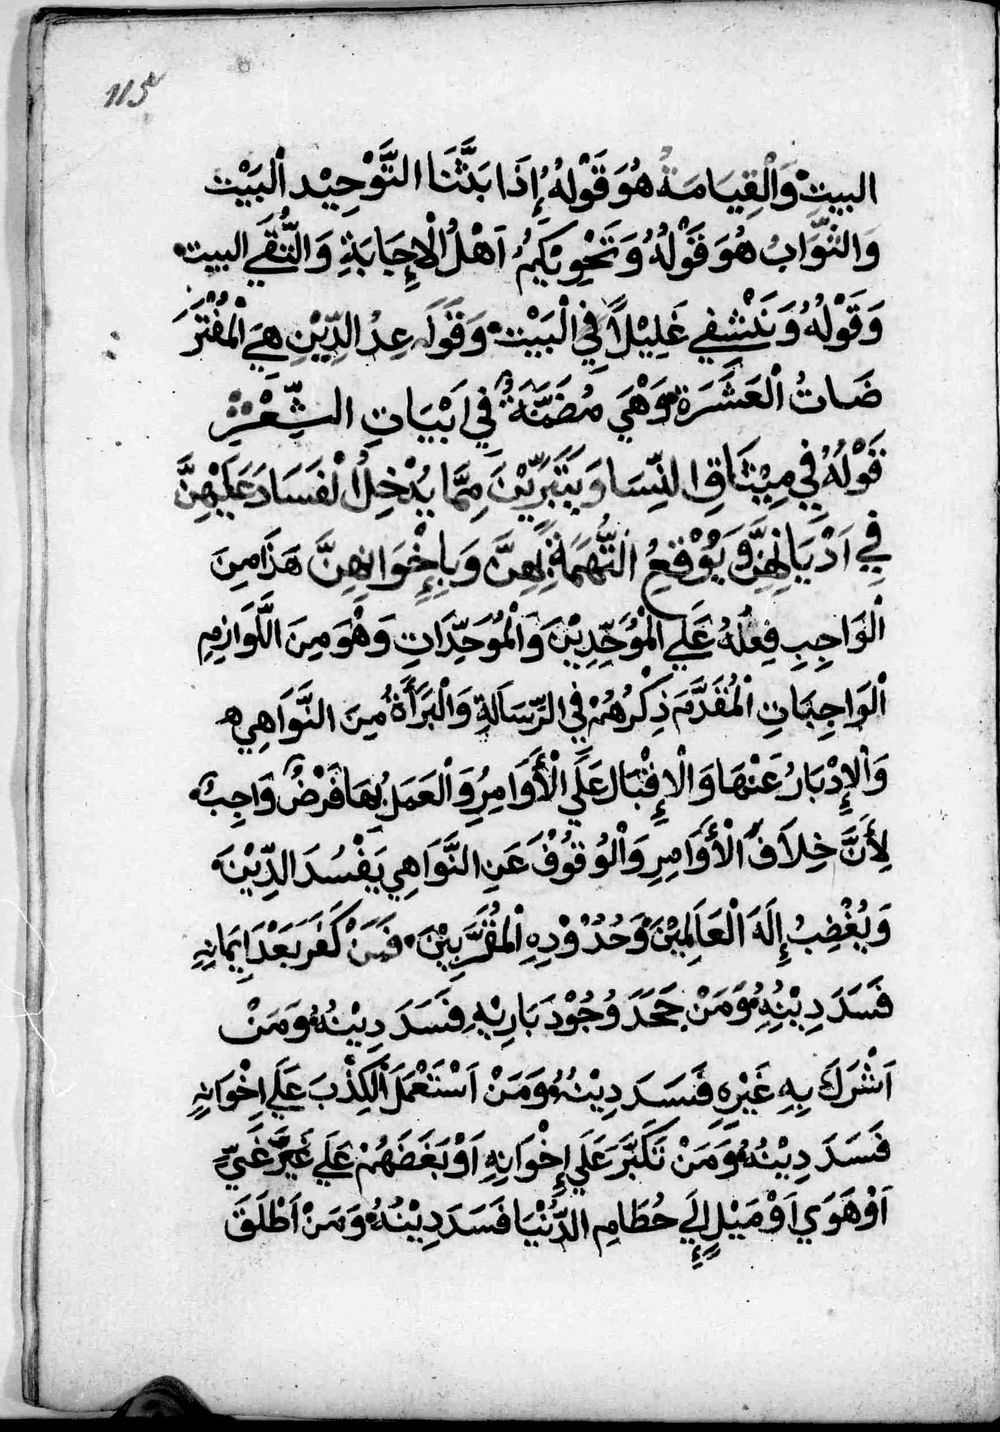 115
البيتْ وَالْقِيَامَةُ هُوَ قَوْلُهُ إِذَا بَثَّنَا التَّوْحِيْد اْلبَيْت
وَالثَّوَابُ هُوَ قَوْلُهُ وَتَحْوِيْكُمُ اَهْلُ الْإِجَابَةِ وَالتُّقَي البيت
وَقَوْلُهُ وَنَشْفِي غَلِيْلًا فِي الْبَيْتْ وَقَوْلَه عِدُ الدِّيْنِ هِيَ الْمُفْتَرَ
ضَاتُ الْعَشَرَة وَهْيَ مُضَمَّنَةٌ فِي اَبْيَاتِ الشِّعْرِ
قَوْلُهُ فِي مِيْثَاقِ النِّسَا وَيَتَبَرِّيْنَ مِمَّا يُدْخِلُ الْفَسَادَ عَلَيْهِنَّ
فِي اَدْيَانِهِنَّ وَيُوْقِعُ التُّهَمَةَ بِهِنَّ وَبِإِخْوَانِهِنَّ هَذَا مِنَ
الْوَاجِبِ فِعْلُهُ عَلَي الْمُوَحِّدِيْنَ وَالْمُوَحِّدَاتِ وَهْوَ مِنَ اللَّوَازِمِ
الْوَاجِبَاتِ الْمُقَدَّمَ ذِكْرُهُمْ فِي الرِّسَالَةِ وَالْبَرَأَةُ مِنَ النَّوَاهِي
وَالْإِدْبَارُ عَنْهَا وَالْإِقْبَالَ عَلَي الْأَوَامِرُ وَالْعَمَلُ بِهَا فَرْضٌ وَاجِبٌ
لِأَنَّ خِلَافَ الْأَوَامِرِ وَالْوُقُوْفَ عَنِ النَّوَاهِي يَفْسُدَ الدِّيْنَ
وَيُغْضِبُ إِلَهَ الْعَالَمِيْنَ وَحُدُوْدِهِ الْمُقَرَّبِيْنَ فَمَنْ كَفَرَ بَعْدَ اِيْمَانِهِ
فَسَدَ دِيْنُهِ وَمَنْ جَحَدَ وُجُوْدَ بَارِيْهِ فَسَدَ دِيْنُهُ وَمَنْ
اَشْرَكَ بِهِ غَيْرِهِ فَسَدَ دِيْنُهُ وَمَنْ اَسْتَعْمَلَ الْكِذْبَ عَلَي إِخْوَانِهِ
فَسَدَ دِيْنُهُ وَمَنْ تَكَبَّرَ عَلَي إِخْوَانِهِ اَوْ بَغَضَهُمْ عَلَي غَيْرَ غَيٍّ
اَوْ هَوَي اَوْ مَيْلٍ إِلَي حُطَامِ الدُّنْيَا فَسَدَ دِيْنُهُ وَمَنْ اَطْلَقَ